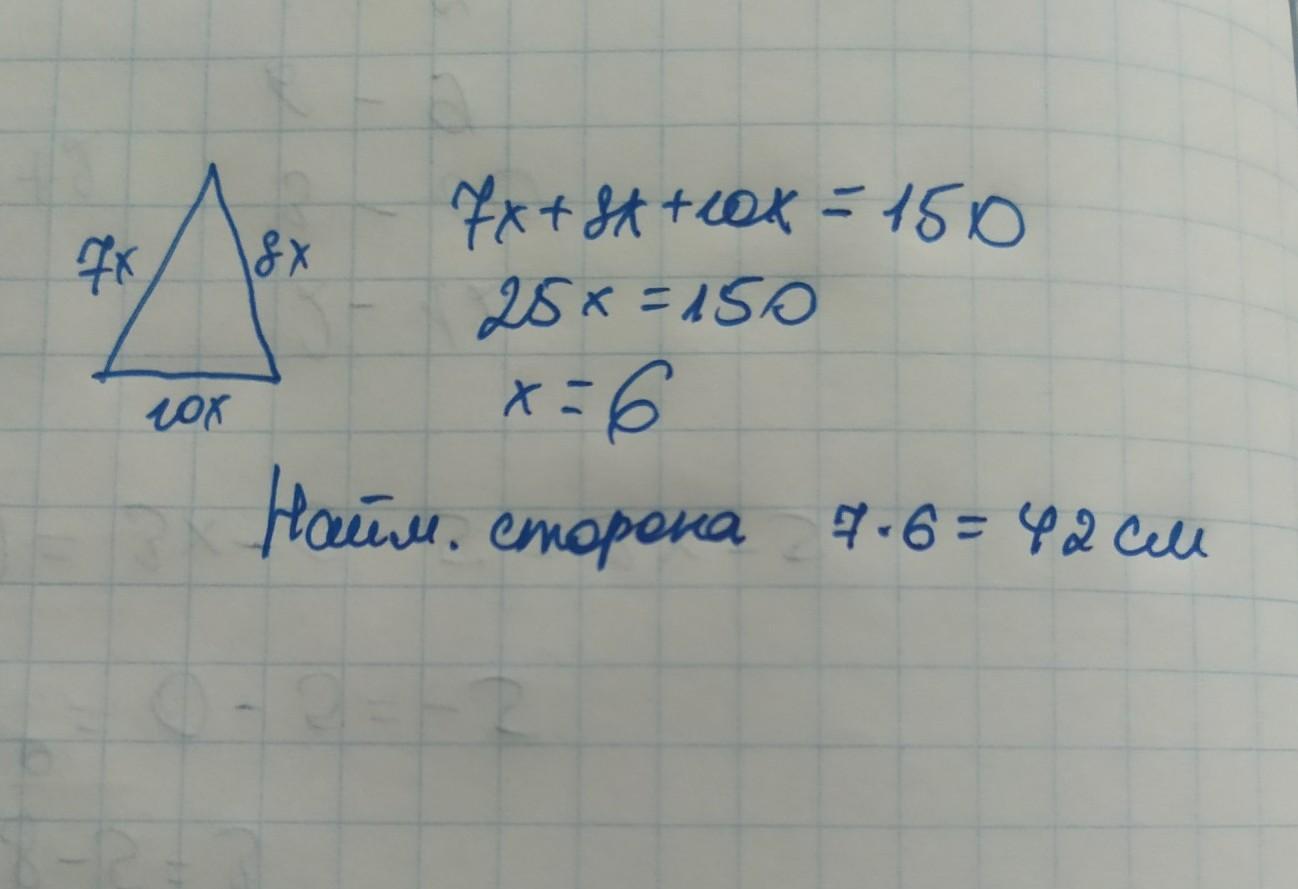 7x
8x
10x
7x+8x+10x = 150
25x = 150
x = 6
Найм. сторона 7·6 = 42 см